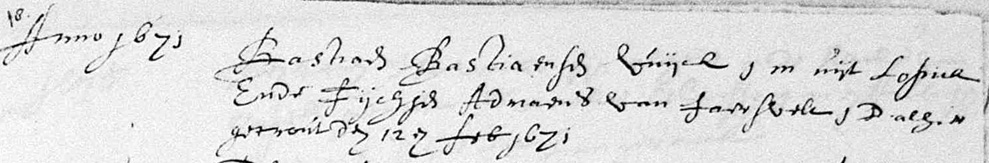 18.
Anno 1671
Bastiaen Bastiaensen Vuijck J m uijt Lopick
Ende Fijchjen Adriaens van Jaersvelt J D alhier
getrout den 12 feb 1671